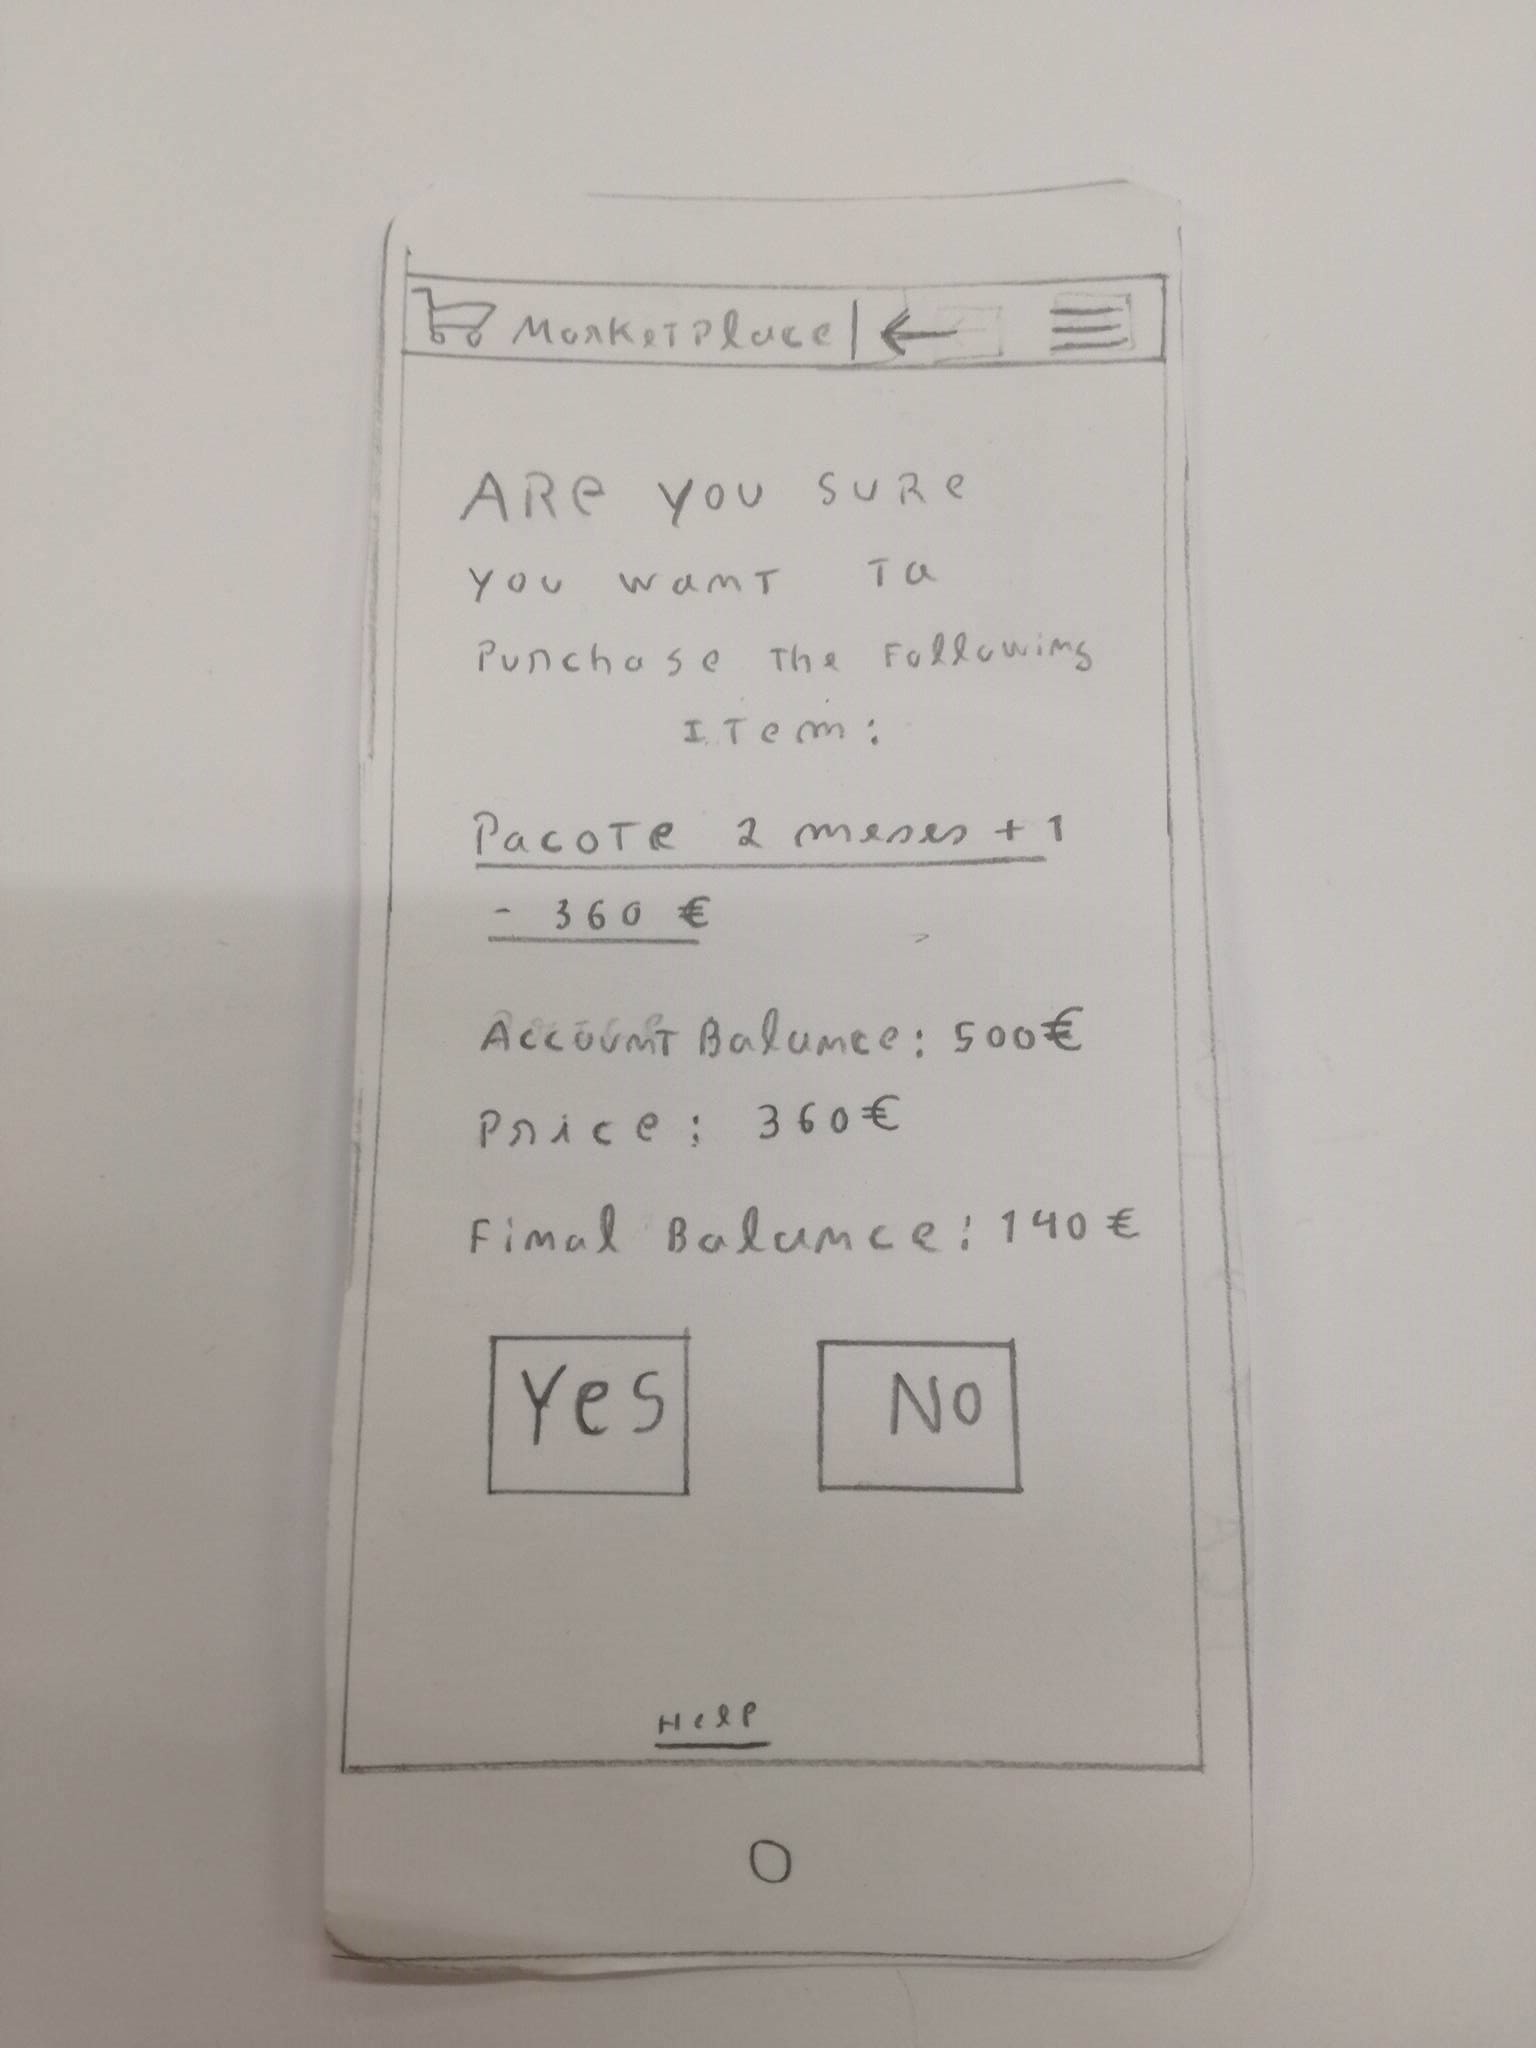 Marketplace
ARe you SURe
you want To
Purchase The Following
ITem:
PacoTe 2 meses + 1
- 360 €
Account Balance: 500€
Price: 360€
Final Balance: 140€
Yes
No
Help